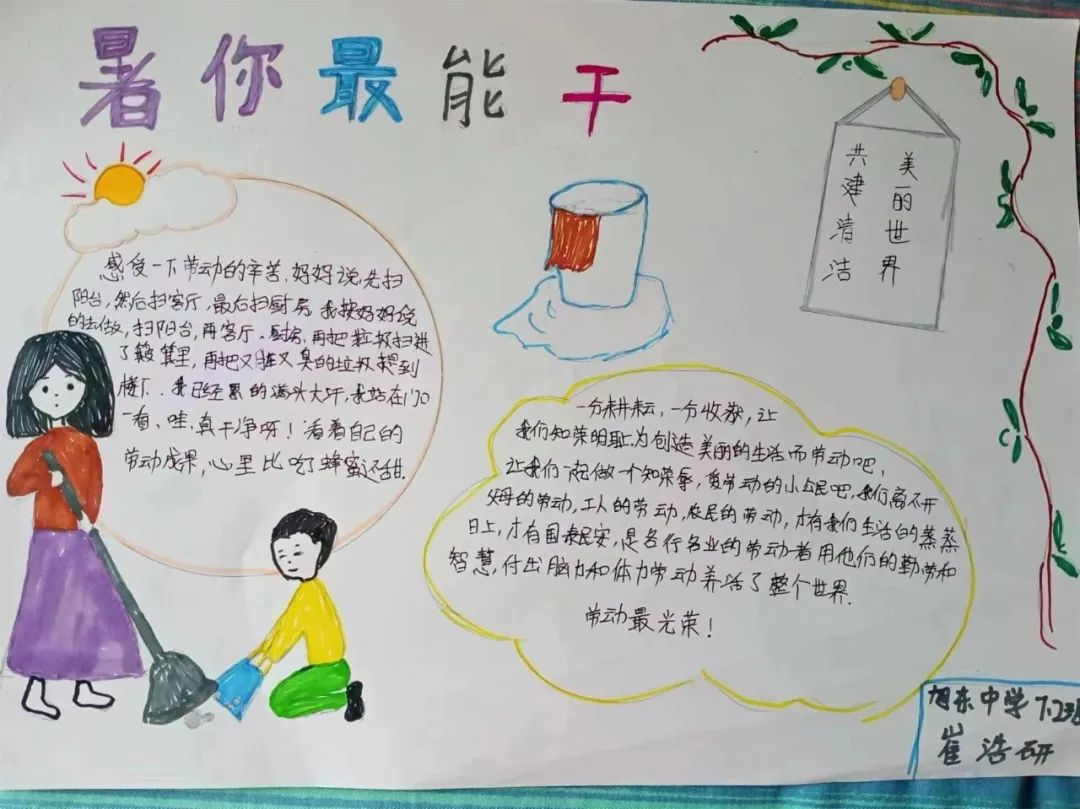 暑你最能干
美丽世界
共建清洁
感受一下劳动的辛苦.妈妈说,先扫
阳台,然后扫客厅,最后扫厨房.我按妈妈说
的去做,扫阳台,再客厅.厨房,再把垃圾扫进
了簸箕里,再把又脏又臭的垃圾提到
楼下.我已经累的满头大汗,我站在门口
一看、哇.真干净呀!看着自己的
劳动成果,心里比吃了蜂蜜还甜.
一分耕耘,一分收获,让
我们知荣明耻.为创造美丽的生活而劳动吧,
让我们一起做一个知荣辱,爱劳动的小公民吧,我们离不开
父母的劳动,工人的劳动,农民的劳动,才有我们生活的蒸蒸
日上,才有国泰民安,是各行各业的劳动者用他们的勤劳和
智慧,付出脑力和体力劳动养活了整个世界.
劳动最光荣!
旭东中学7.2班
崔浩研